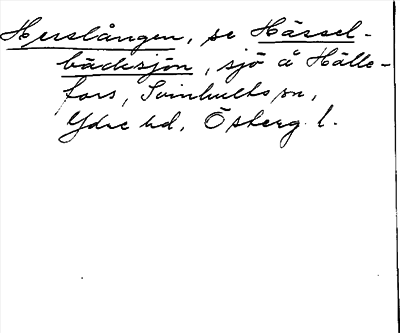 Herslången, se Hässel-
bäcksjön, sjö å Hälle-
fors, Svinhults sn,
Ydre hd, Österg. l.